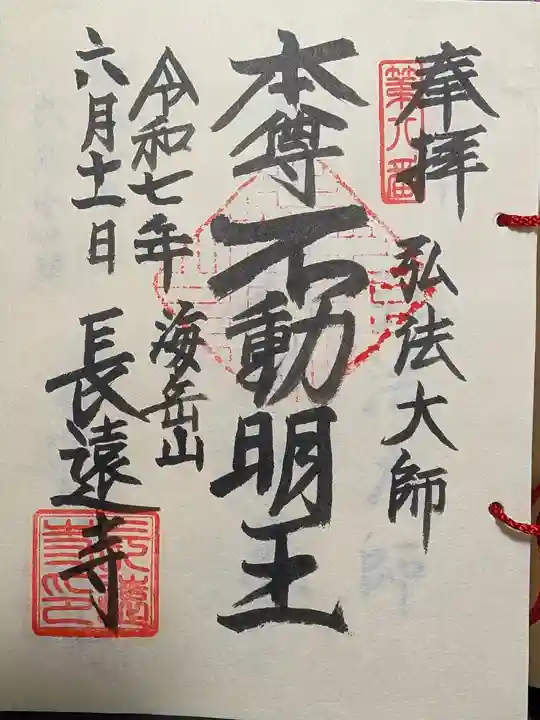 奉拝
第九番
弘法大師
本尊
不動明王
令和七年
六月十一日
海岳山
長遠寺